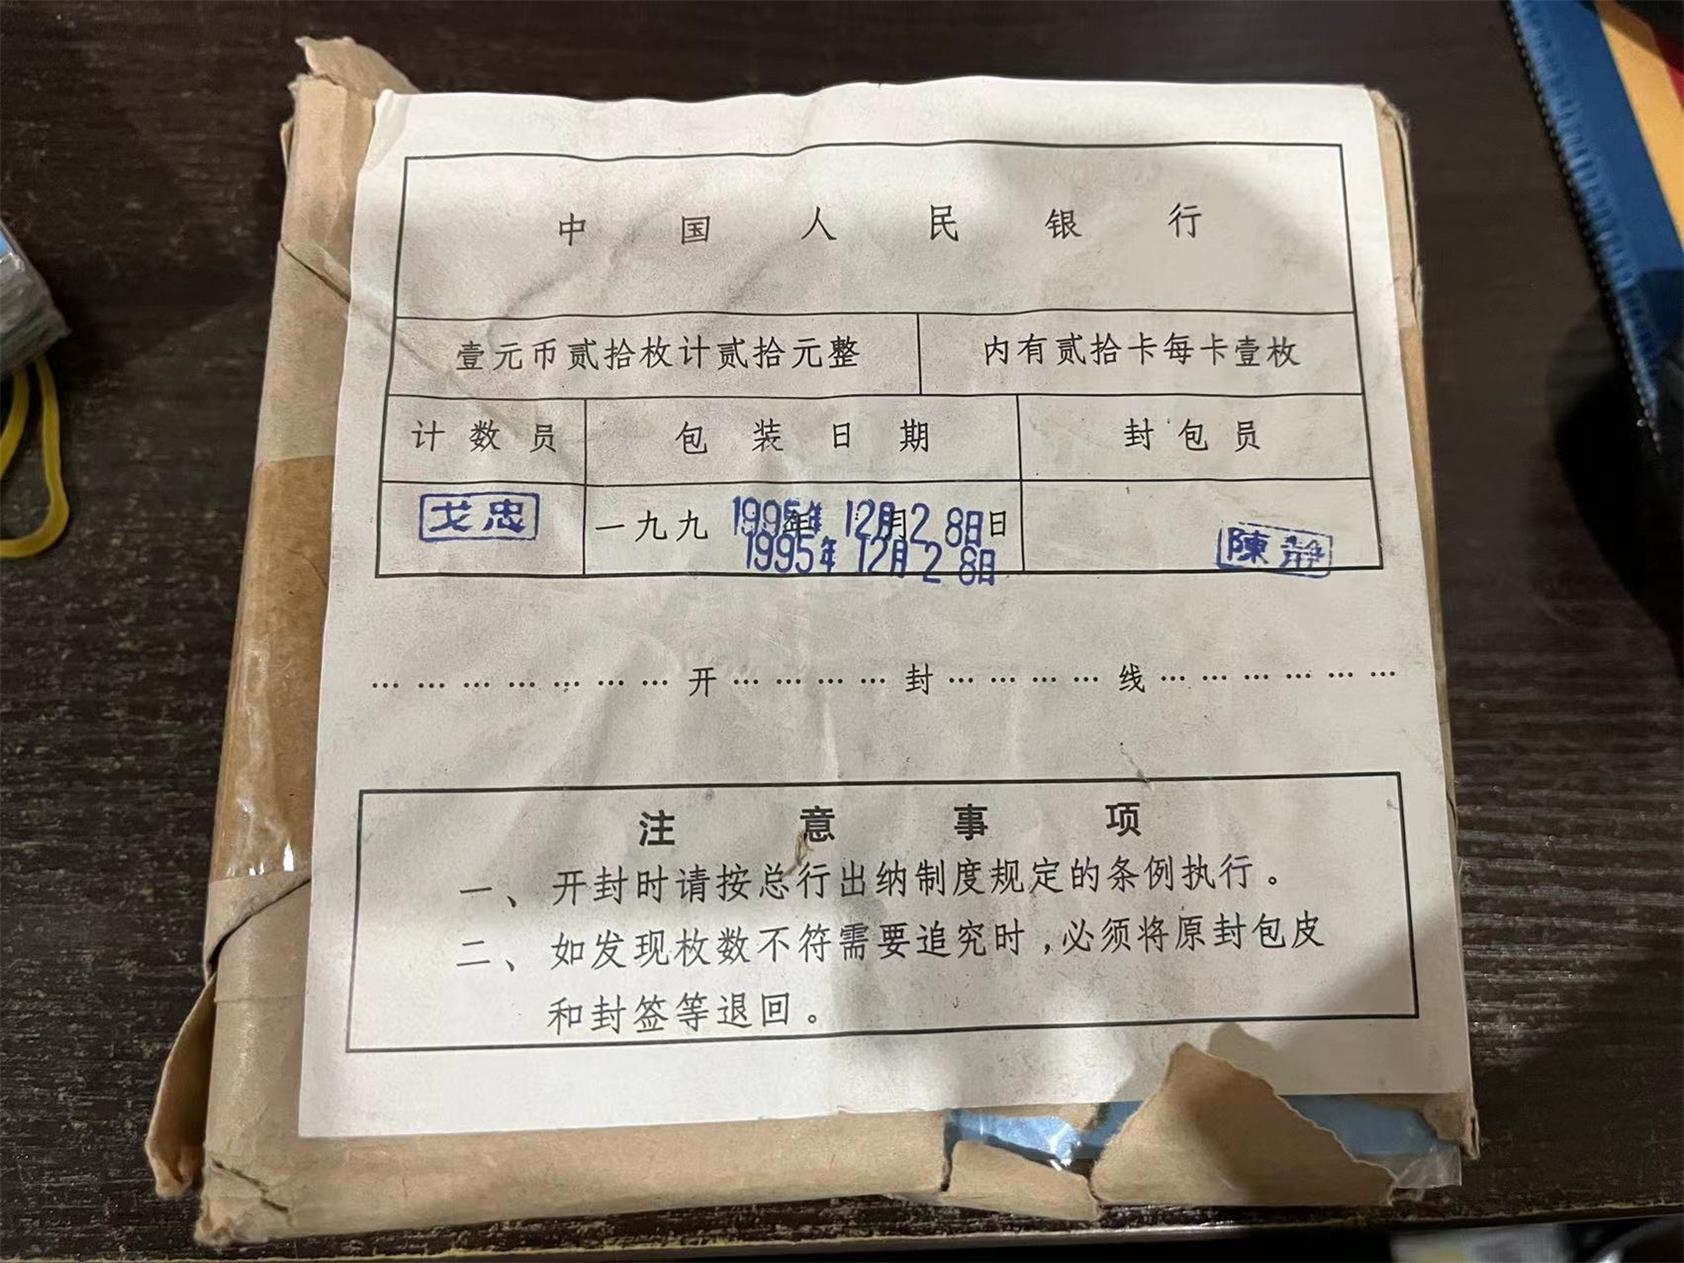 中国人民银行
壹元币贰拾枚计贰拾元整 内有贰拾卡每卡壹枚
计数员 包装日期 封包员
戈忠 一九九 年 月 日 陳静
1995年12月28日
1995年12月28日
………………开…………封…………线………………
注意事项
一、开封时请按总行出纳制度规定的条例执行。
二、如发现枚数不符需要追究时,必须将原封包皮
和封签等退回。